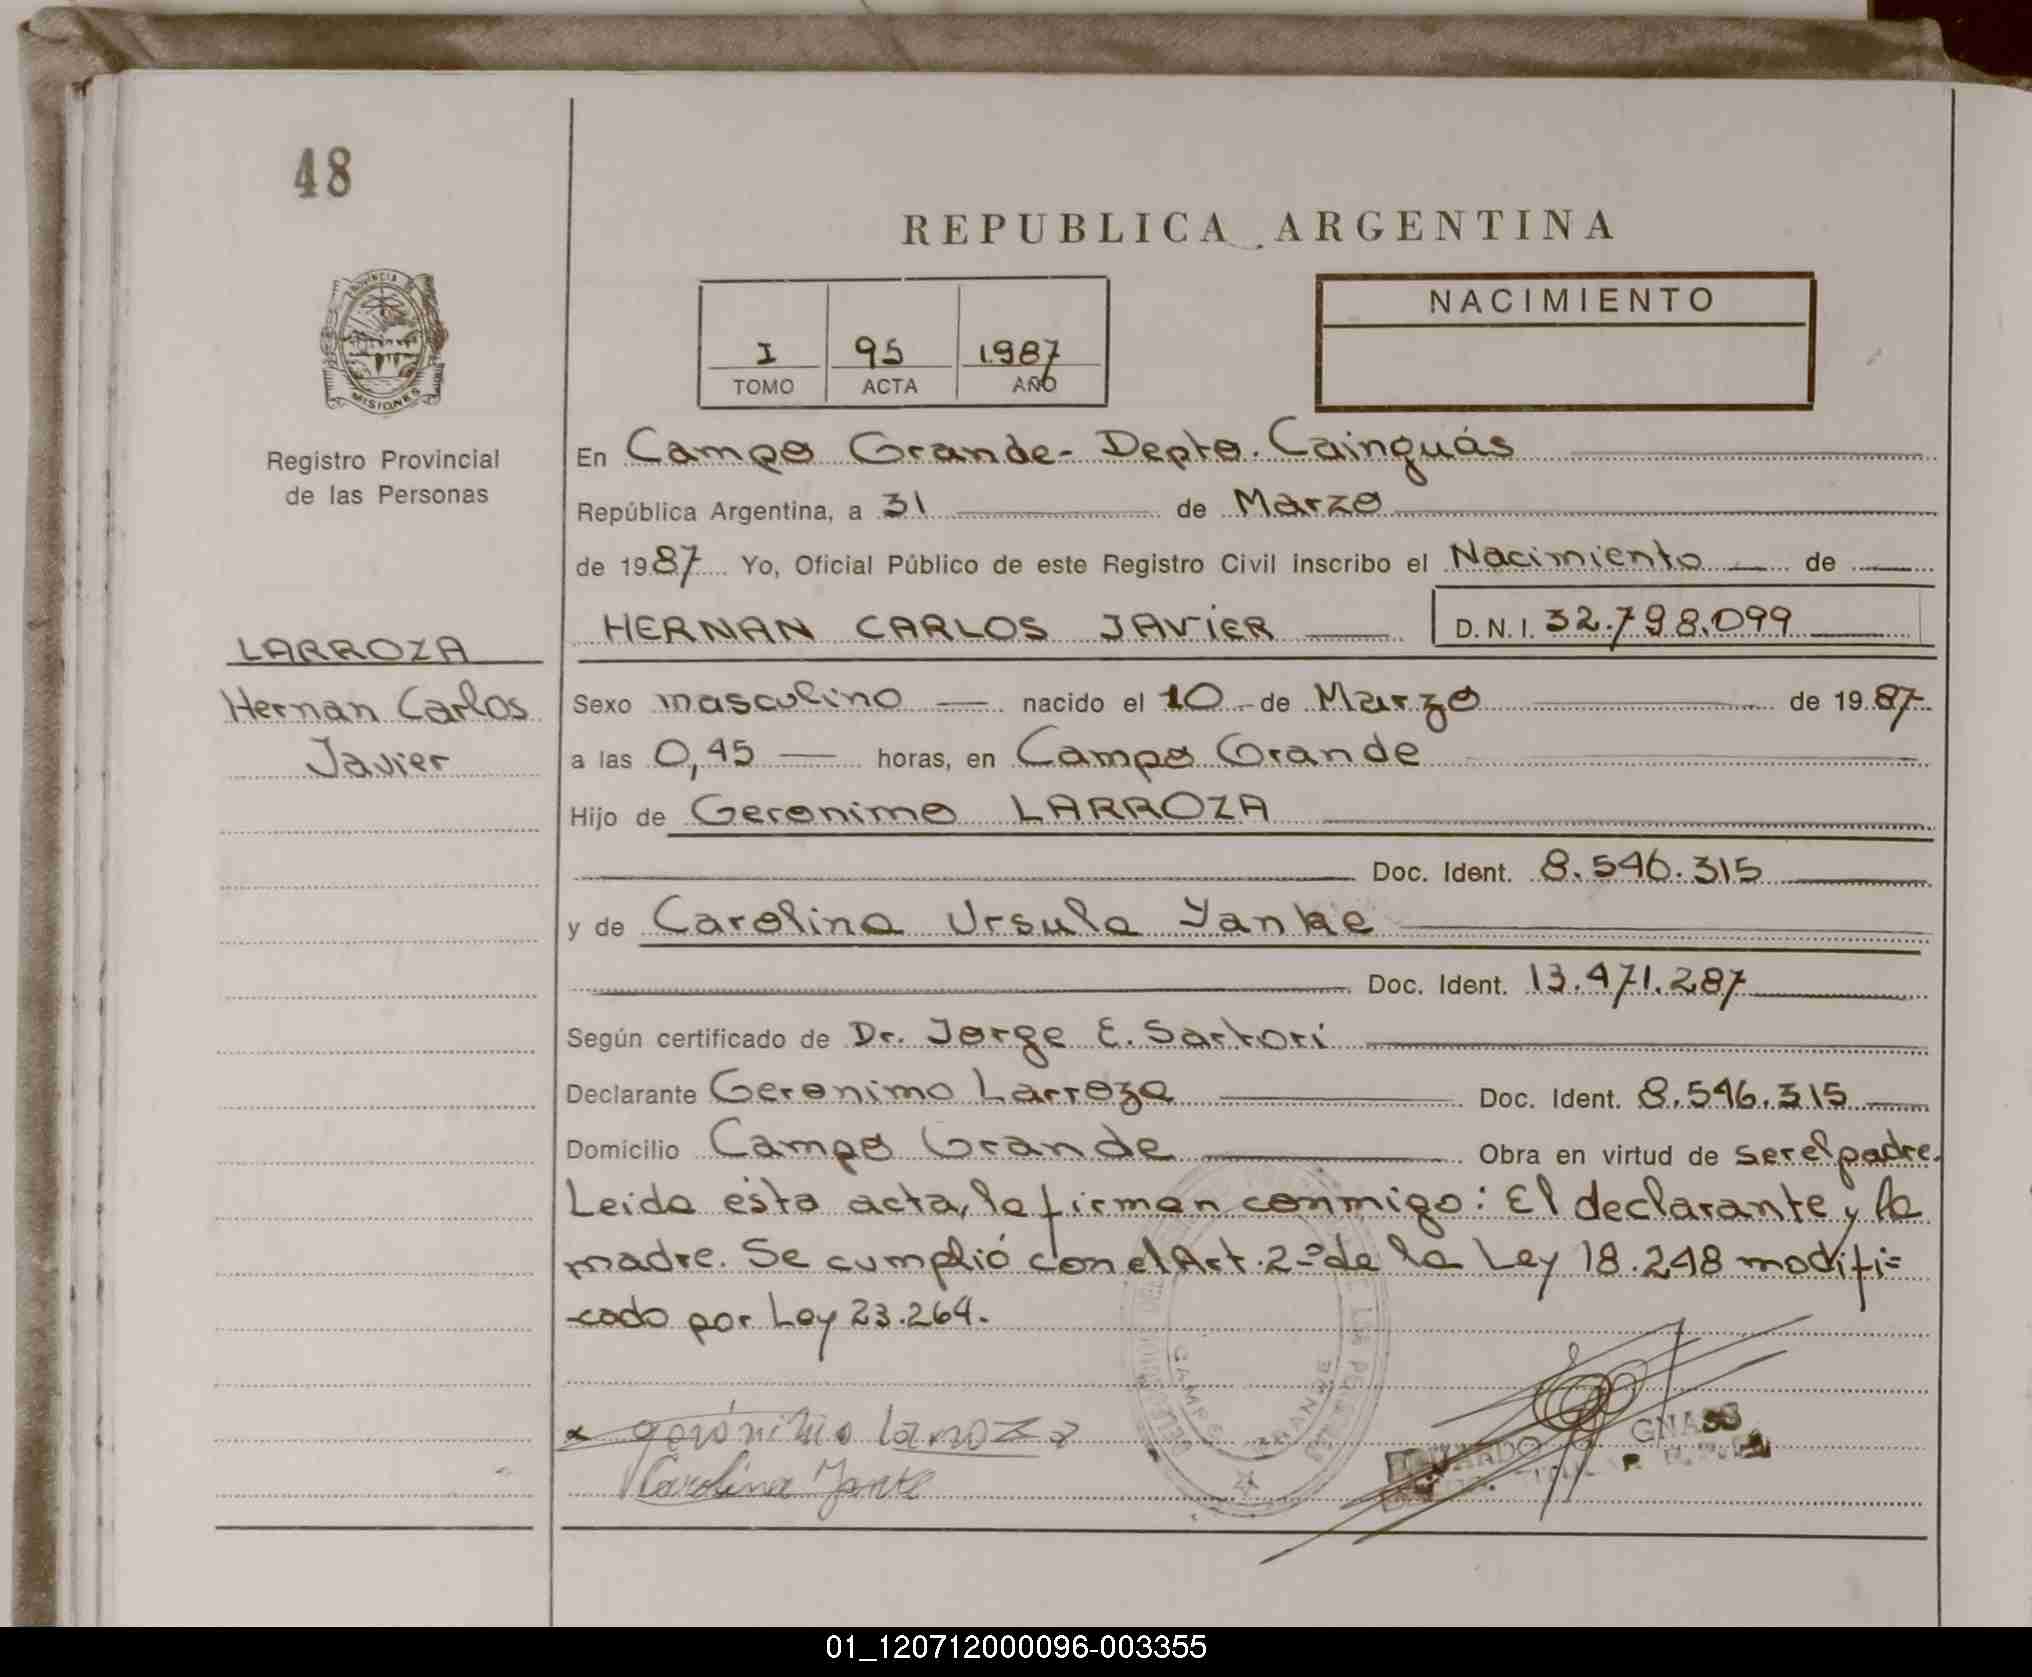 48
REPUBLICA ARGENTINA
PROVINCIA DE
MISIONES
Registro Provincial
de las Personas
I 95 1.987
TOMO ACTA AÑO
NACIMIENTO
En Campo Grande- Depto. Cainguás
República Argentina, a 31 de Marzo
de 1987 Yo, Oficial Público de este Registro Civil inscribo el Nacimiento de
HERNAN CARLOS JAVIER D.N.I. 32.798.099
LARROZA
Hernan Carlos
Javier
Sexo masculino nacido el 10 de Marzo de 1987
a las 0,45 horas, en Campo Grande
Hijo de Geronimo LARROZA
Doc. Ident. 8.546.315
y de Carolina Ursula Yanke
Doc. Ident. 13.471.287
Según certificado de Dr. Jorge E. Sartori
Declarante Geronimo Larroza Doc. Ident. 8.546.315
Domicilio Campo Grande Obra en virtud de ser el padre.
Leida esta acta, la firman conmigo: El declarante y la
madre. Se cumplió con el Art. 2º de la Ley 18.248 modifi=
cado por Ley 23.264.
CAMPO GRANDE
x gerónimo larroza
Carolina Yanke
01_120712000096-003355